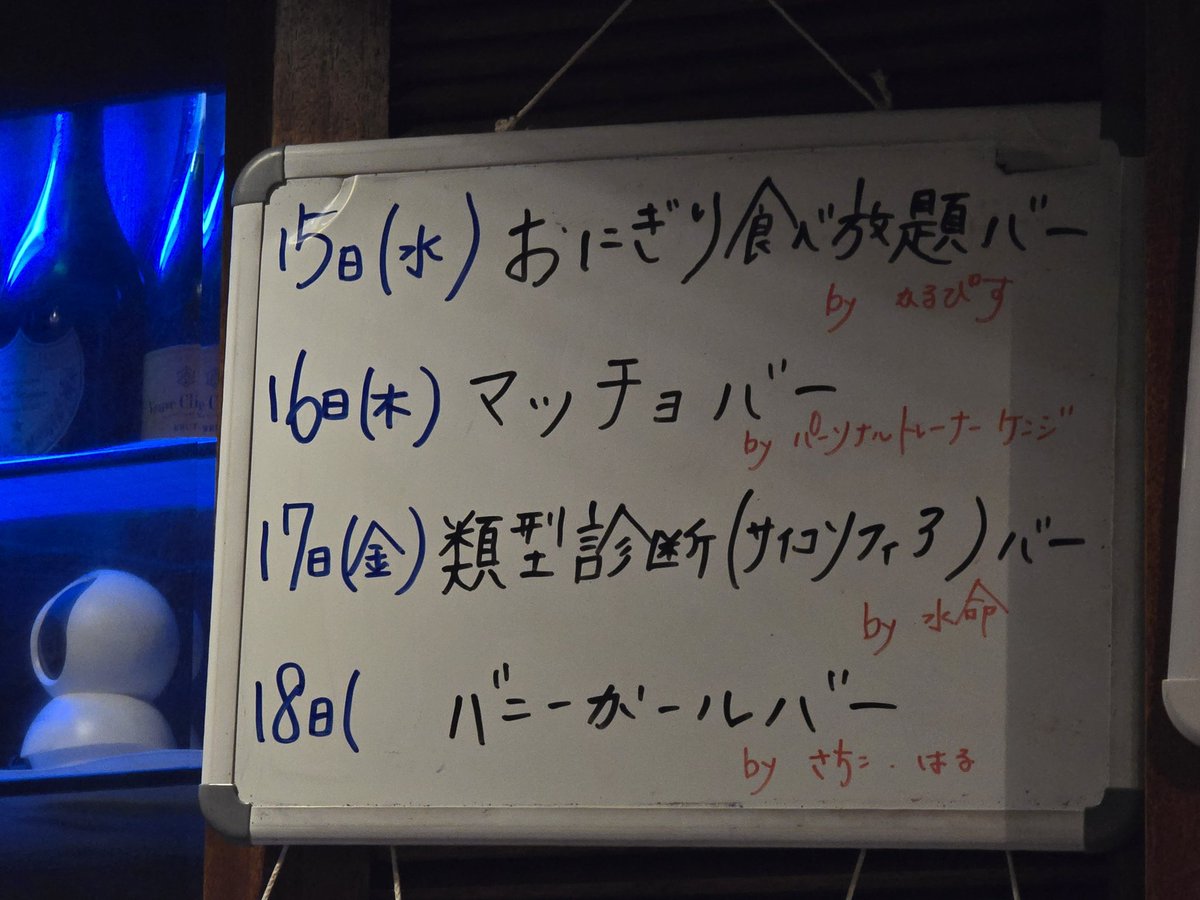 15日(水) おにぎり食べ放題バー
by なるぴす
16日(木) マッチョバー
by パーソナルトレーナーケンジ
17日(金) 類型診断(サイコソフィア)バー
by 水命
18日( バニーガールバー
by さちこ・はる